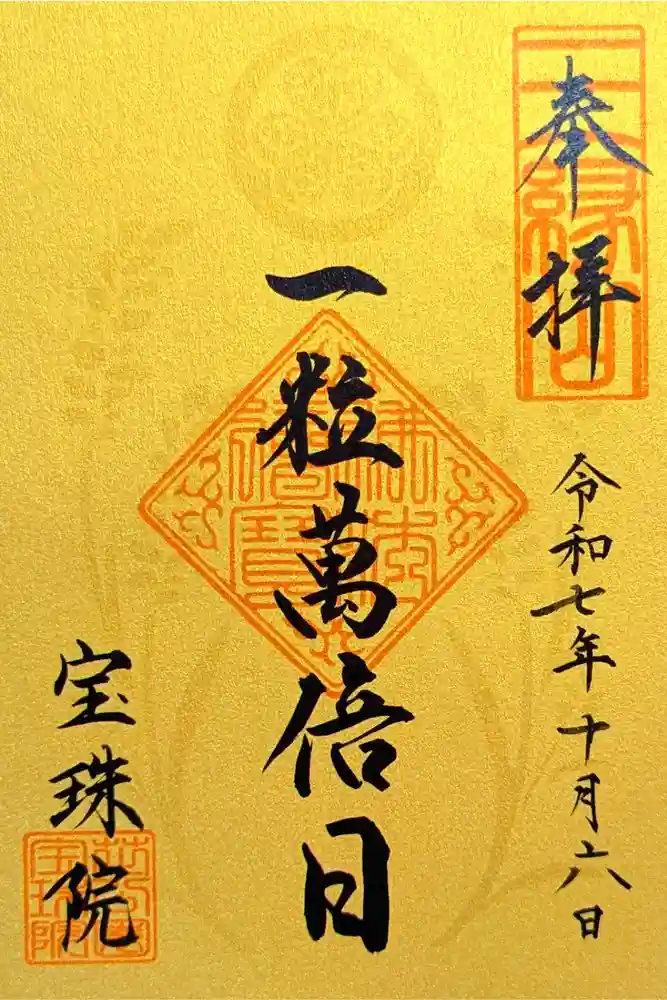 奉拝
令和七年十月六日
一粒萬倍日
宝珠院